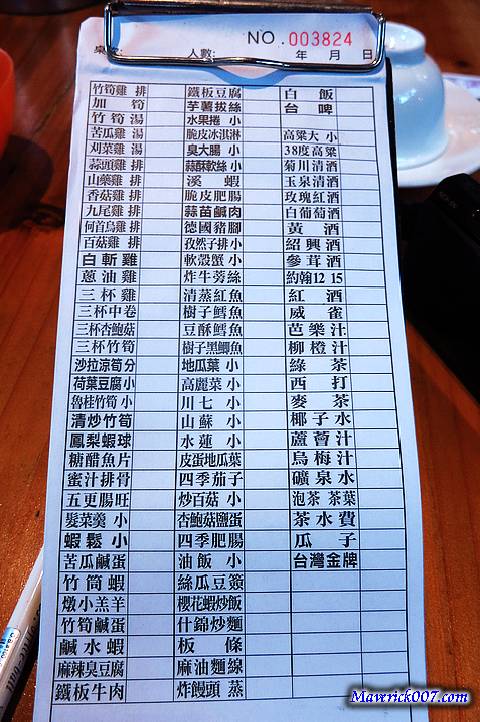 NO. 003824
桌次: 人數: 年 月 日
竹筍雞 排 鐵板豆腐 白飯
加筍 芋薯拔絲 台啤
竹筍湯 水果捲 小
苦瓜雞 湯 脆皮冰淇淋 高粱大 小
刈菜雞 湯 臭大腸 小 38度高粱
蒜頭雞 排 蒜酥軟絲 小 菊川清酒
山藥雞 排 溪蝦 玉泉清酒
香菇雞 排 脆皮肥腸 玫瑰紅酒
九尾雞 排 蒜苗鹹肉 白葡萄酒
何首烏雞 排 德國豬腳 黃酒
百菇雞 排 孜然子排 小 紹興酒
白斬雞 軟殼蟹 小 參茸酒
蔥油雞 炸牛蒡絲 約翰12 15
三杯雞 清蒸紅魚 紅酒
三杯中卷 樹子鱈魚 威雀
三杯杏鮑菇 豆酥鱈魚 芭樂汁
三杯竹筍 樹子黑鯛魚 柳橙汁
沙拉涼筍 分 地瓜葉 小 綠茶
荷葉豆腐 小 高麗菜 小 西打
魯桂竹筍 小 川七 小 麥茶
清炒竹筍 山蘇 小 椰子水
鳳梨蝦球 水蓮 小 蘆薈汁
糖醋魚片 皮蛋地瓜葉 烏梅汁
蜜汁排骨 四季茄子 礦泉水
五更腸旺 炒百菇 小 泡茶 茶葉
髮菜羹 小 杏鮑菇鹽蛋 茶水費
蝦鬆 小 四季肥腸 瓜子
苦瓜鹹蛋 油飯 小 台灣金牌
竹筒蝦 絲瓜豆簽
燉小羔羊 櫻花蝦炒飯
竹筍鹹蛋 什錦炒麵
鹹水蝦 板條
麻辣臭豆腐 麻油麵線
鐵板牛肉 炸饅頭 蒸
Mavrick007.com